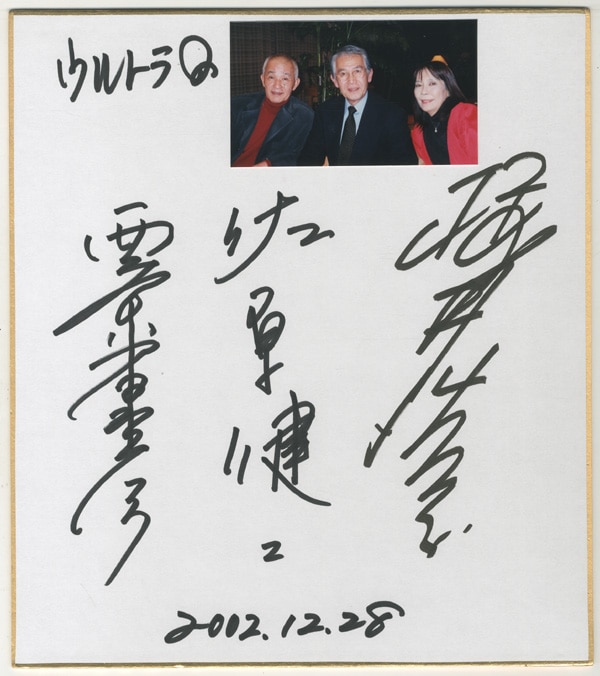 ウルトラQ
桜井浩子
佐原健二
西條康彦
2002.12.28